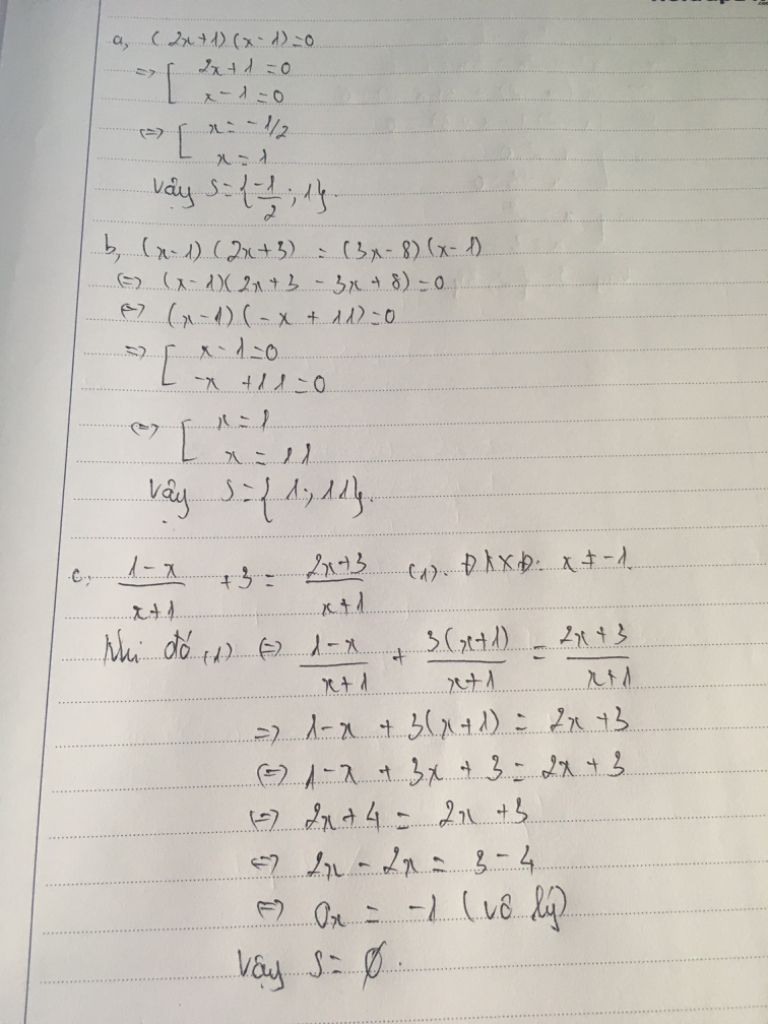 a, (2x+1)(x-1)=0
=> [ 2x+1=0
x-1=0
<=> [ x=-1/2
x=1
Vậy S={-1/2 ; 1}.
b, (x-1)(2x+3) = (3x-8)(x-1)
<=> (x-1)(2x+3-3x+8)=0
<=> (x-1)(-x+11)=0
=> [ x-1=0
-x+11=0
<=> [ x=1
x=11
Vậy S={1;11}.
c, (1-x)/(x+1) +3 = (2x+3)/(x+1) (1). ĐKXĐ: x≠-1.
Khi đó (1) <=> (1-x)/(x+1) + 3(x+1)/(x+1) = (2x+3)/(x+1)
=> 1-x + 3(x+1) = 2x+3
<=> 1-x + 3x + 3 = 2x+3
<=> 2x+4 = 2x+3
<=> 2x-2x = 3-4
<=> 0x = -1 (vô lý)
Vậy S=∅.